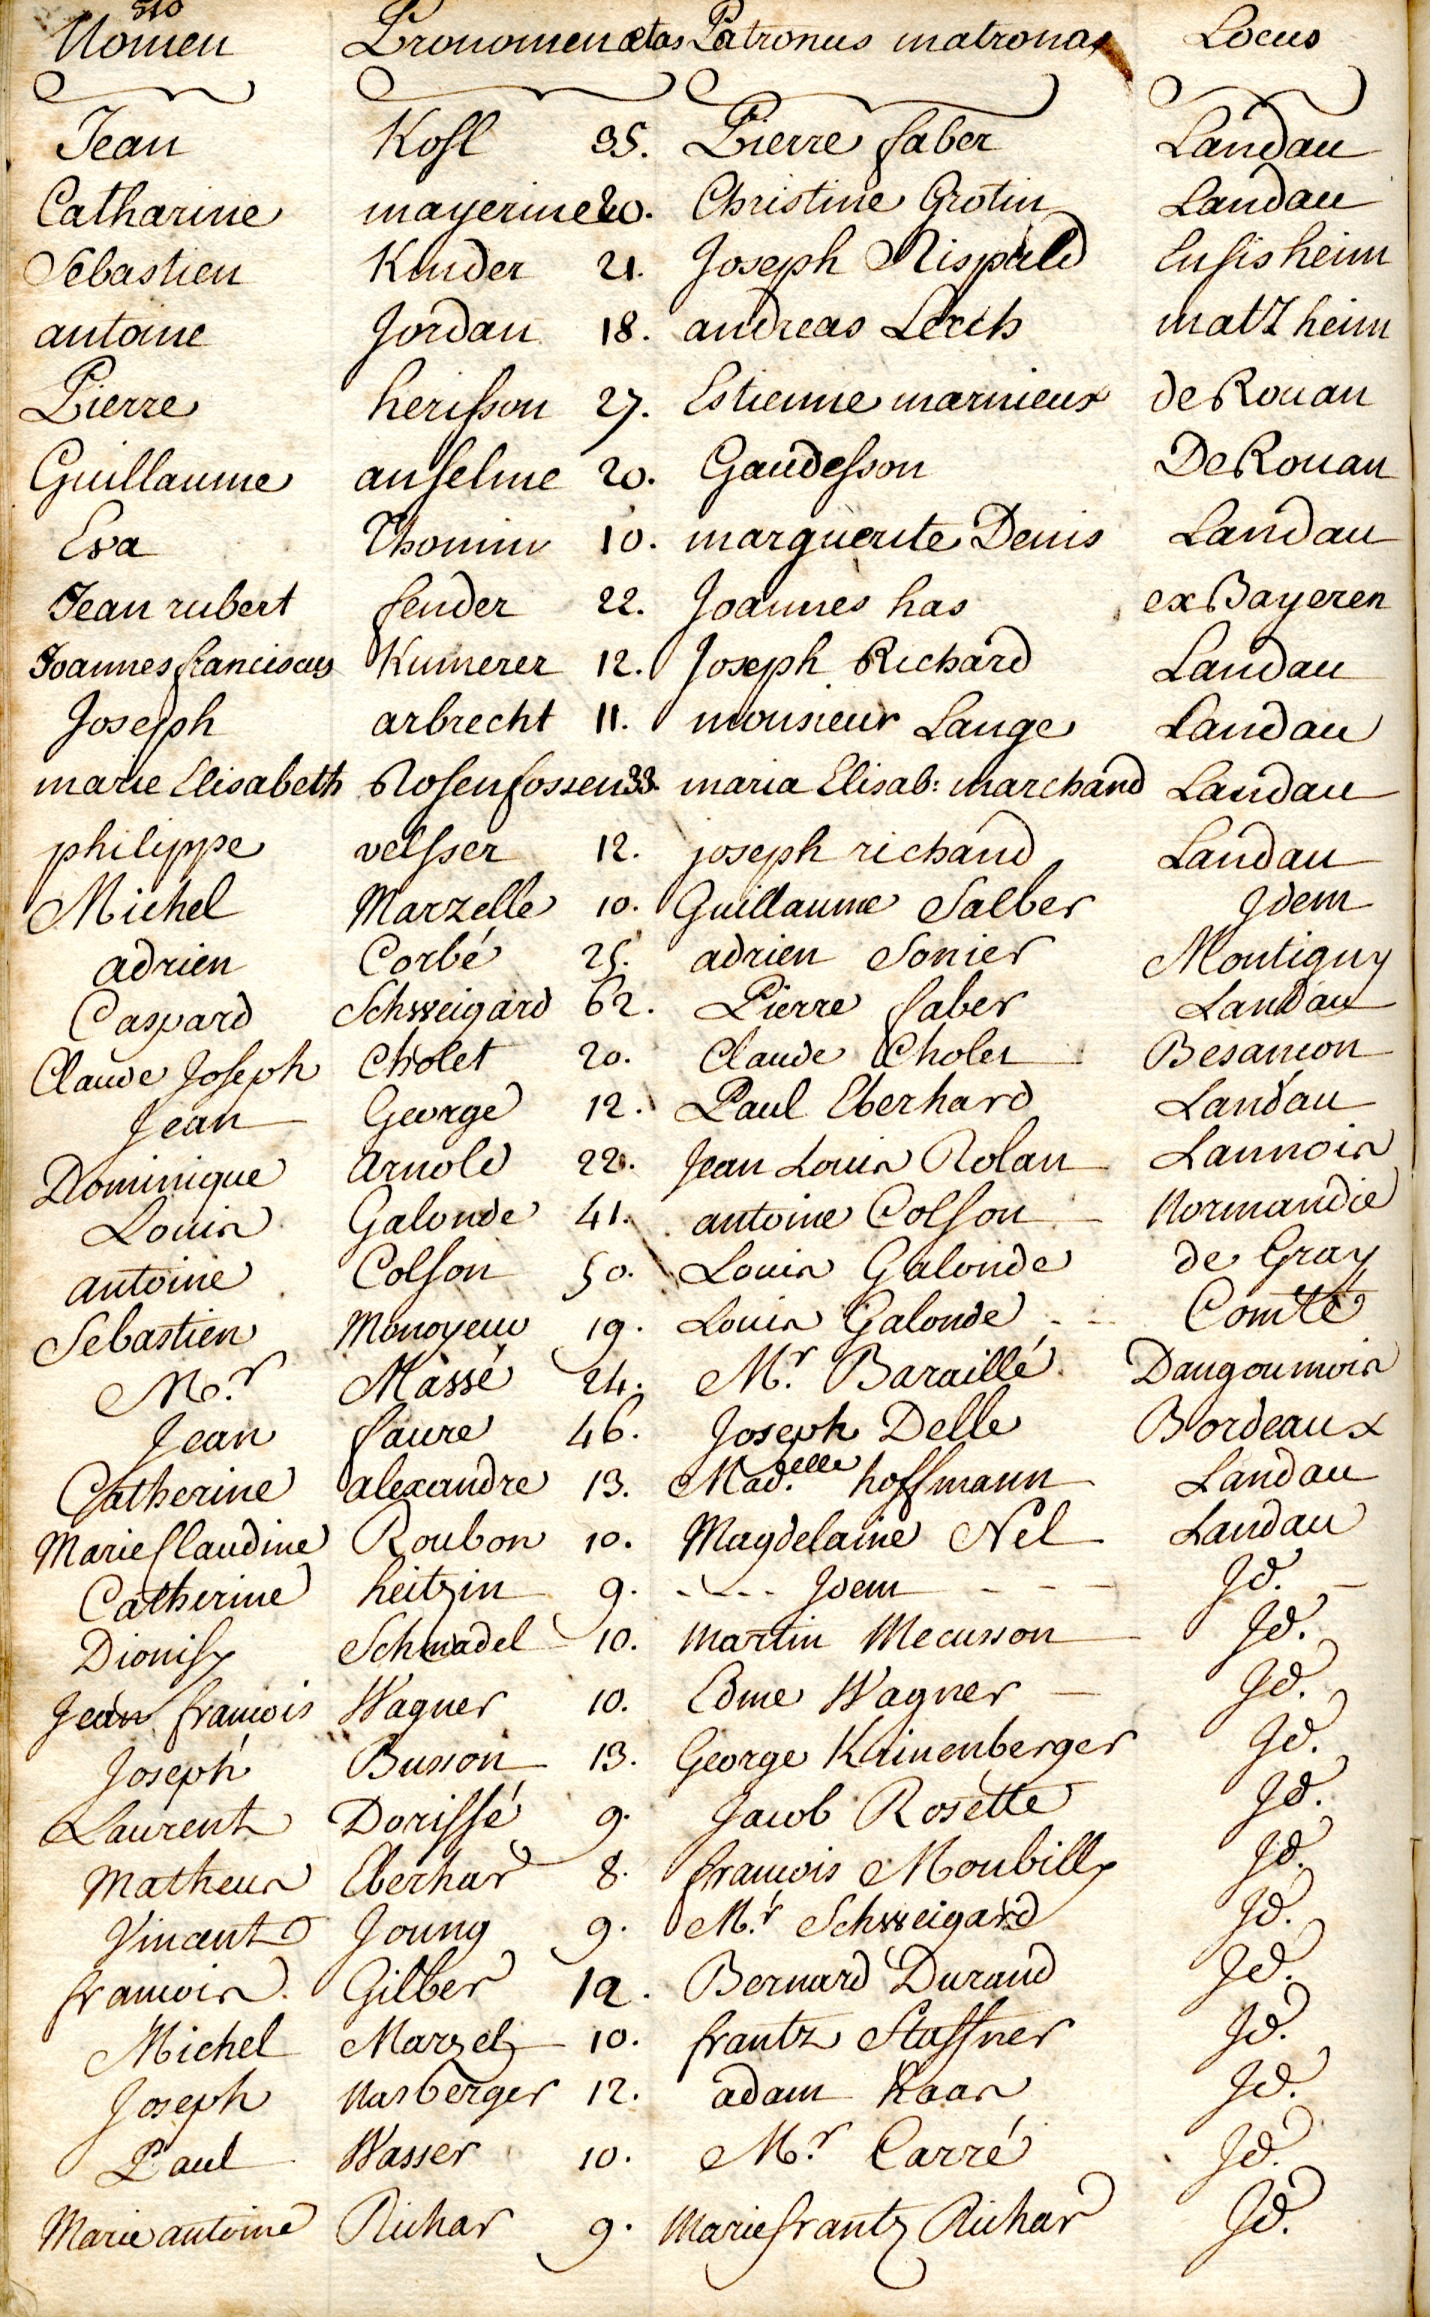 Nomen Pronomen ætas Patronus matrona Locus
Jean Kosl 35. Pierre faber Landau
Catharine mayerine 20. Christine Grotin Landau
Sebastien Kinder 21. Joseph Landau Ensisheim
antoine Jordan 18. andreas Lerch matzheim
Pierre herisson 27. Estienne marnieux de Rouan
Guillaume anselme 20. Gaudesson De Rouan
Eva Thominn 10. marguerite Denis Landau
Jean rubert fender 22. Joannes has ex Bayeren
Joannes franciscus Kumerer 12. Joseph Richard Landau
Joseph arbrecht 11. monsieur Lange Landau
marie Elisabeth Rosenfossen 33. maria Elisab: marchand Landau
philippe velsser 12. joseph richard Landau
Michel Marzelle 10. Guillaume Salber Jdem
adrien Corbé 25. adrien Sonier Montigny
Caspard Schweigard 62. Pierre faber Landau
Claude Joseph Cholet 20. Claude Cholet Besancon
Jean George 12. Paul Eberhard Landau
Dominique Arnold 22. Jean Louis Rolan Lannois
Louis Galonde 41. antoine Colson Normandie
antoine Colson 50. Louis Galonde de Gray
Sebastien Monoyeur 19. Louis Galonde Comté
Mr. Massé 24. Mr. Baraillé Dangoumois
Jean faure 46. Joseph Delle Bordeaux
Catherine alexandre 13. Mad.elle hoffmann Landau
Marie Claudine Roubon 10. Magdelaine Nel Landau
Catherine heitzin 9. - - - - Jdem - - - Jd. -
Dionisy Schnadel 10. Martin Mecusson Jd.
Jean francois Wagner 10. Edme Wagner Jd.
Joseph Busson 13. George Krinenberger Jd.
Laurent Dorissé 9. Jacob Rosette Jd.
Matheus Eberhard 8. francois Moubilly Jd.
Vincent Joung 9. Mr. Schweigard Jd.
francois Gilber 12. Bernard Durand Jd.
Michel Marzel 10. frantz Staffner Jd.
Joseph Nasberger 12. adam haas Jd.
Paul Wasser 10. Mr. Carré Jd.
Marie antoine Richar 9. Marie frantz Richar Jd.